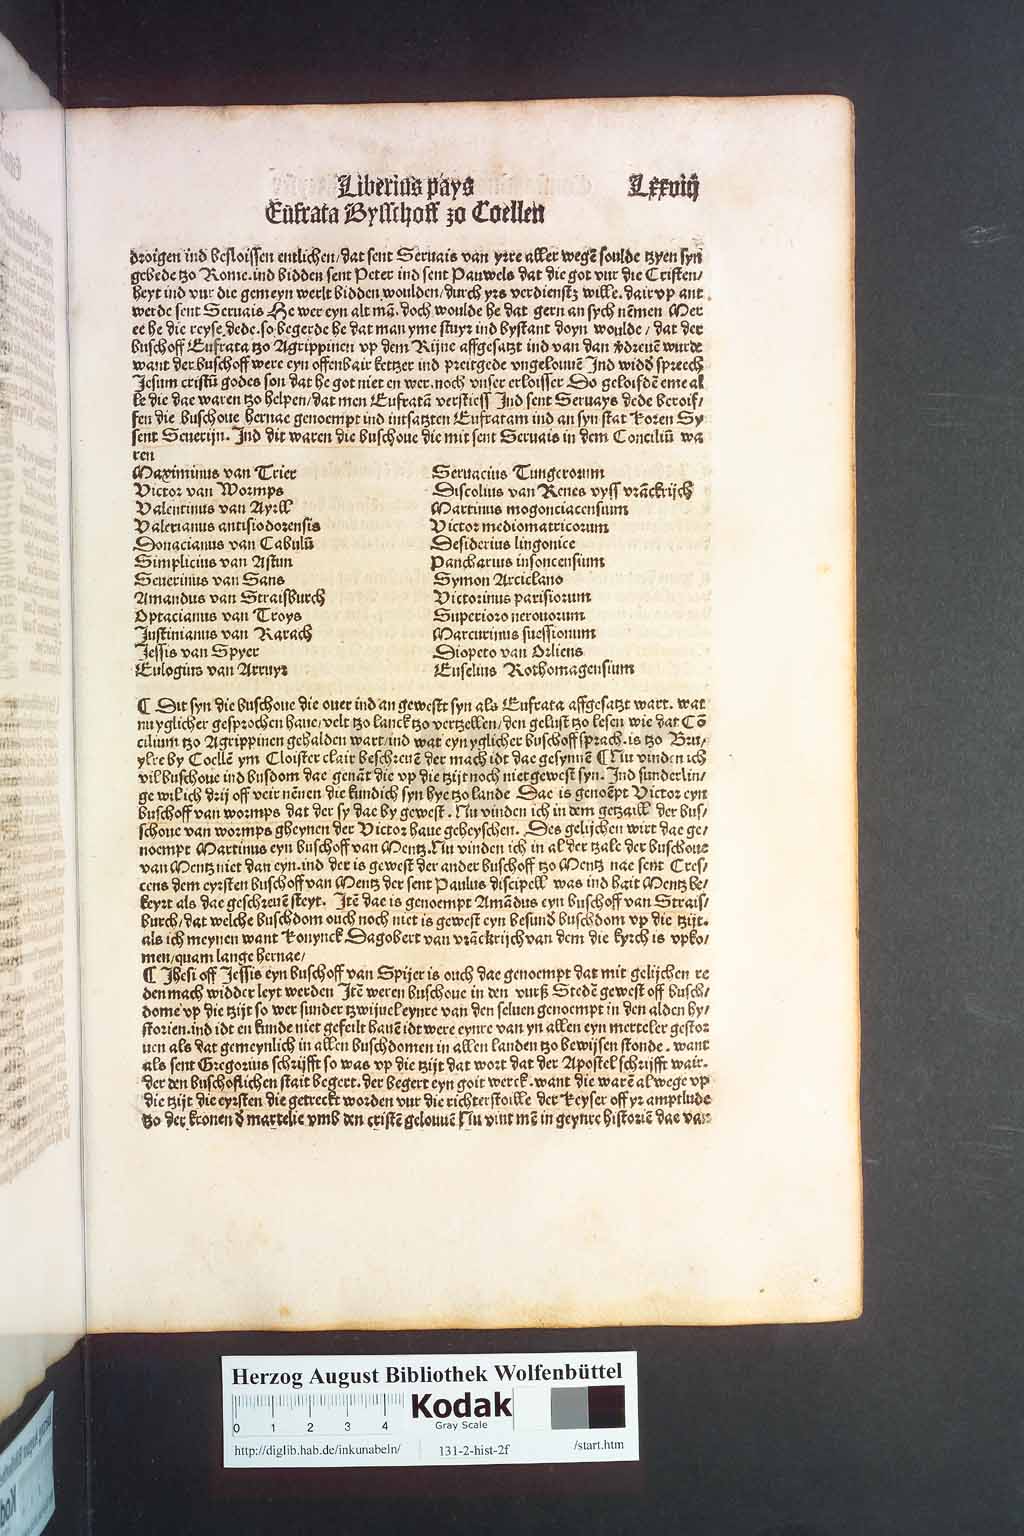 Liberius pays Lxxviij
Eufrata Bysschoff zo Coellen
droigen ind besloissen entlichen/dat sent Seruais van yrre aller wegē soulde tzyen syn
gebede tzo Rome.ind bidden sent Peter ind sent Pauwels dat die got vur die Cristen/
heyt ind vur die gemeyn werlt bidden woulden/durch yrs verdienstz wille.dair vp ant
werde sent Seruais He wer eyn alt mā.doch woulde he dat gern an sych nēmen Mer
ee he die reyse dede.so begerde he dat man yme stuyr ind bystant doyn woulde/dat der
buschoff Eufrata tzo Agrippinen vp dem Rijne affgesatzt ind van dan v̄dreuē wurde
want der buschoff were eyn offenbair ketzer ind preitgede vngelouuē Ind widd̄ spreech
Jesum cristū godes son dat he got niet en wer.noch vnser erloisser Do geloifdē eme al
le die dae waren tzo helpen/dat men Eufratā verstiess Ind sent Seruays dede beroif/
fen die buschoue hernae genoempt ind intsatzten Eufratam ind an syn stat koren Sy
sent Seuerijn. Ind dit waren die buschoue die mit sent Seruais in dem Conciliū wa
ren
Maximinus van Trier
Victor van Wormps
Valentinus van Ayrll
Valerianus antisiodorensis
Donacianus van Cabulū
Simplicius van Astun
Seuerinus van Sans
Amandus van Straisburch
Optacianus van Troys
Justinianus van Rarach
Jessis van Spyer
Eulogius van Arruyr
Seruacius Tungerorum
Discolius van Renes vyss vrāckrijch
Martinus mogonciacensium
Victor mediomatricorum
Desiderius lingonice
Pancharius insoncensium
Symon Arciclano
Victorinus parisiorum
Superioro neruorum
Marcurinus suessionum
Diopeto van Orliens
Euselius Rothomagensium
¶ Dit syn die buschoue die ouer ind an gewest syn als Eufrata affgesatzt wart. wat
nu yglicher gesprochen haue/velt tzo lanck tzo vertzellen/den gelust tzo lesen wie dat Cō
cilium tzo Agrippinen gehalden wart/ind wat eyn yglicher buschoff sprach.is tzo Bru/
ylre by Coellē ym Cloister clair beschreuē der mach idt dae gesynnē ¶ Nu vinden ich
vil buschoue ind busdom dae genāt die vp die tzijt noch niet gewest syn. Ind sunderlin/
ge wil ich drij off veir nēnen die kundich syn hye tzo lande Dae is genoēpt Victor eyn
buschoff van wormps dat der sy dae by gewest. Nu vinden ich in dem getzaill der bus/
schoue van wormps gheynen der Victor haue geheyschen. Des gelijchen wirt dae ge/
noempt Martinus eyn buschoff van Mentz.Nu vinden ich in al der tzale der buschoue
van Mentz niet dan eyn.ind der is gewest der ander buschoff tzo Mentz nae sent Cres/
cens dem eyrsten buschoff van Mentz der sent Paulus discipell was ind hait Mentz be/
keyrt als dae geschreuē steyt. Itē dae is genoempt Amādus eyn buschoff van Strais/
burch/dat welche buschdom ouch noch niet is gewest eyn besund̄ buschdom vp die tzijt.
als ich meynen want konynck Dagobert van vrāckrijch van dem die kyrch is vpko/
men/quam lange hernae/
¶ Jhesi off Jessis eyn buschoff van Spijer is ouch dae genoempt dat mit gelijchen re
den mach widder leyt werden Itē weren buschoue in den vurß Stedē gewest off busch/
dome vp die tzijt so wer sunder tzwijuel eynre van den seluen genoempt in den alden hy/
storien.ind idt en kunde niet gefeilt hauē idt were eynre van yn allen eyn merteler gestor
uen als dat gemeynlich in allen buschdomen in allen landen tzo bewijsen stonde. want
als sent Gregorius schrijfft so was vp die tzijt dat wort dat der Apostel schrijfft wair.
der den buschoflichen stait begert.der begert eyn goit werck.want die warē alwege vp
die tzijt die eyrsten die getreckt worden vur die richterstoille der keyser off yr amptlude
tzo der kronen d̄ martelie vmb den cristē gelouuē Nu vint mē in geynre historiē dae van
Herzog August Bibliothek Wolfenbüttel
0 1 2 3 4
Kodak
Gray Scale
http://diglib.hab.de/inkunabeln/ 131-2-hist-2f /start.htm